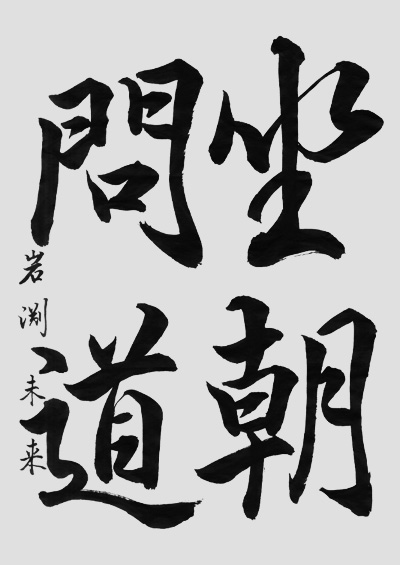 坐朝
問道
岩渕未来